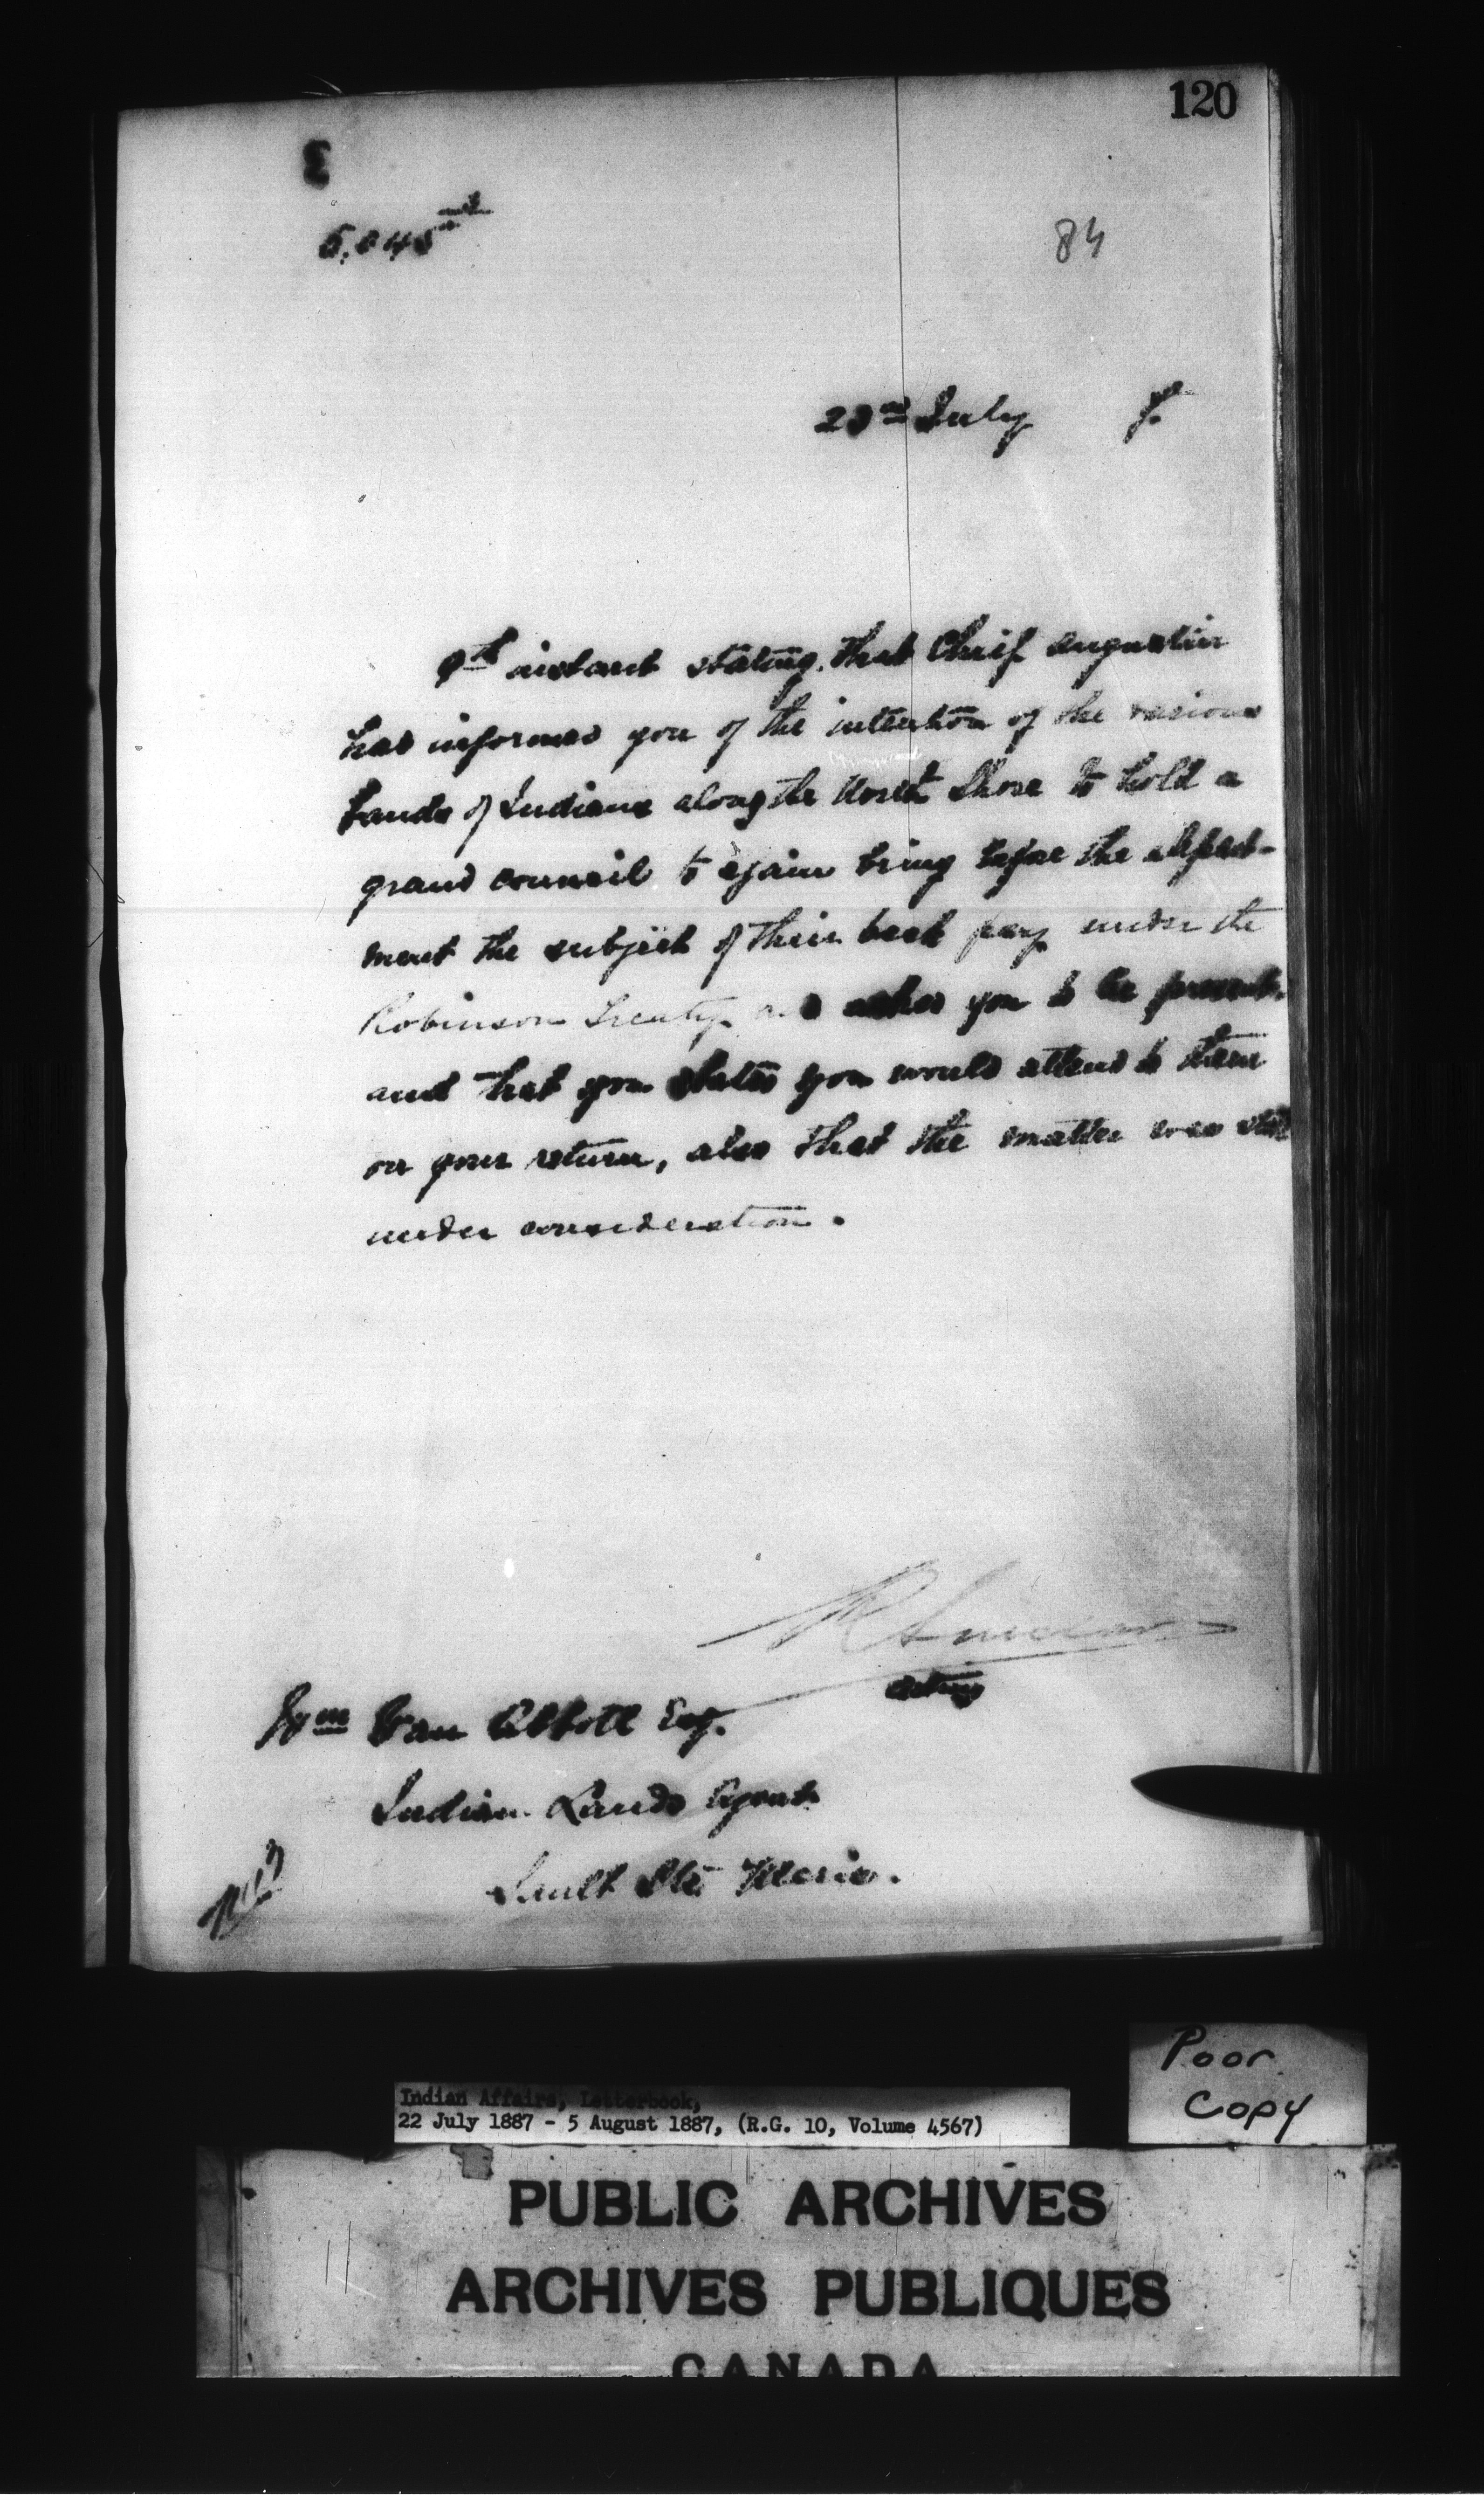 120
84
July 7
instant stating that Chief Augustin
has informed you of the intention of the various
bands of Indians along the North Shore to hold a
grand council to again bring before the depart-
ment the subject of their back pay under the
Robinson Treaty and asked you to be present
and that you stated you would attend to them
on your return, also that the matter was still
under consideration.
R Sinclair
acting
Wm Van Abbott Esq.
Indian Lands Agent
Sault Ste Marie.
Poor
Copy
Indian Affairs, Letterbook,
22 July 1887 - 5 August 1887, (R.G. 10, Volume 4567)
PUBLIC ARCHIVES
ARCHIVES PUBLIQUES
CANADA